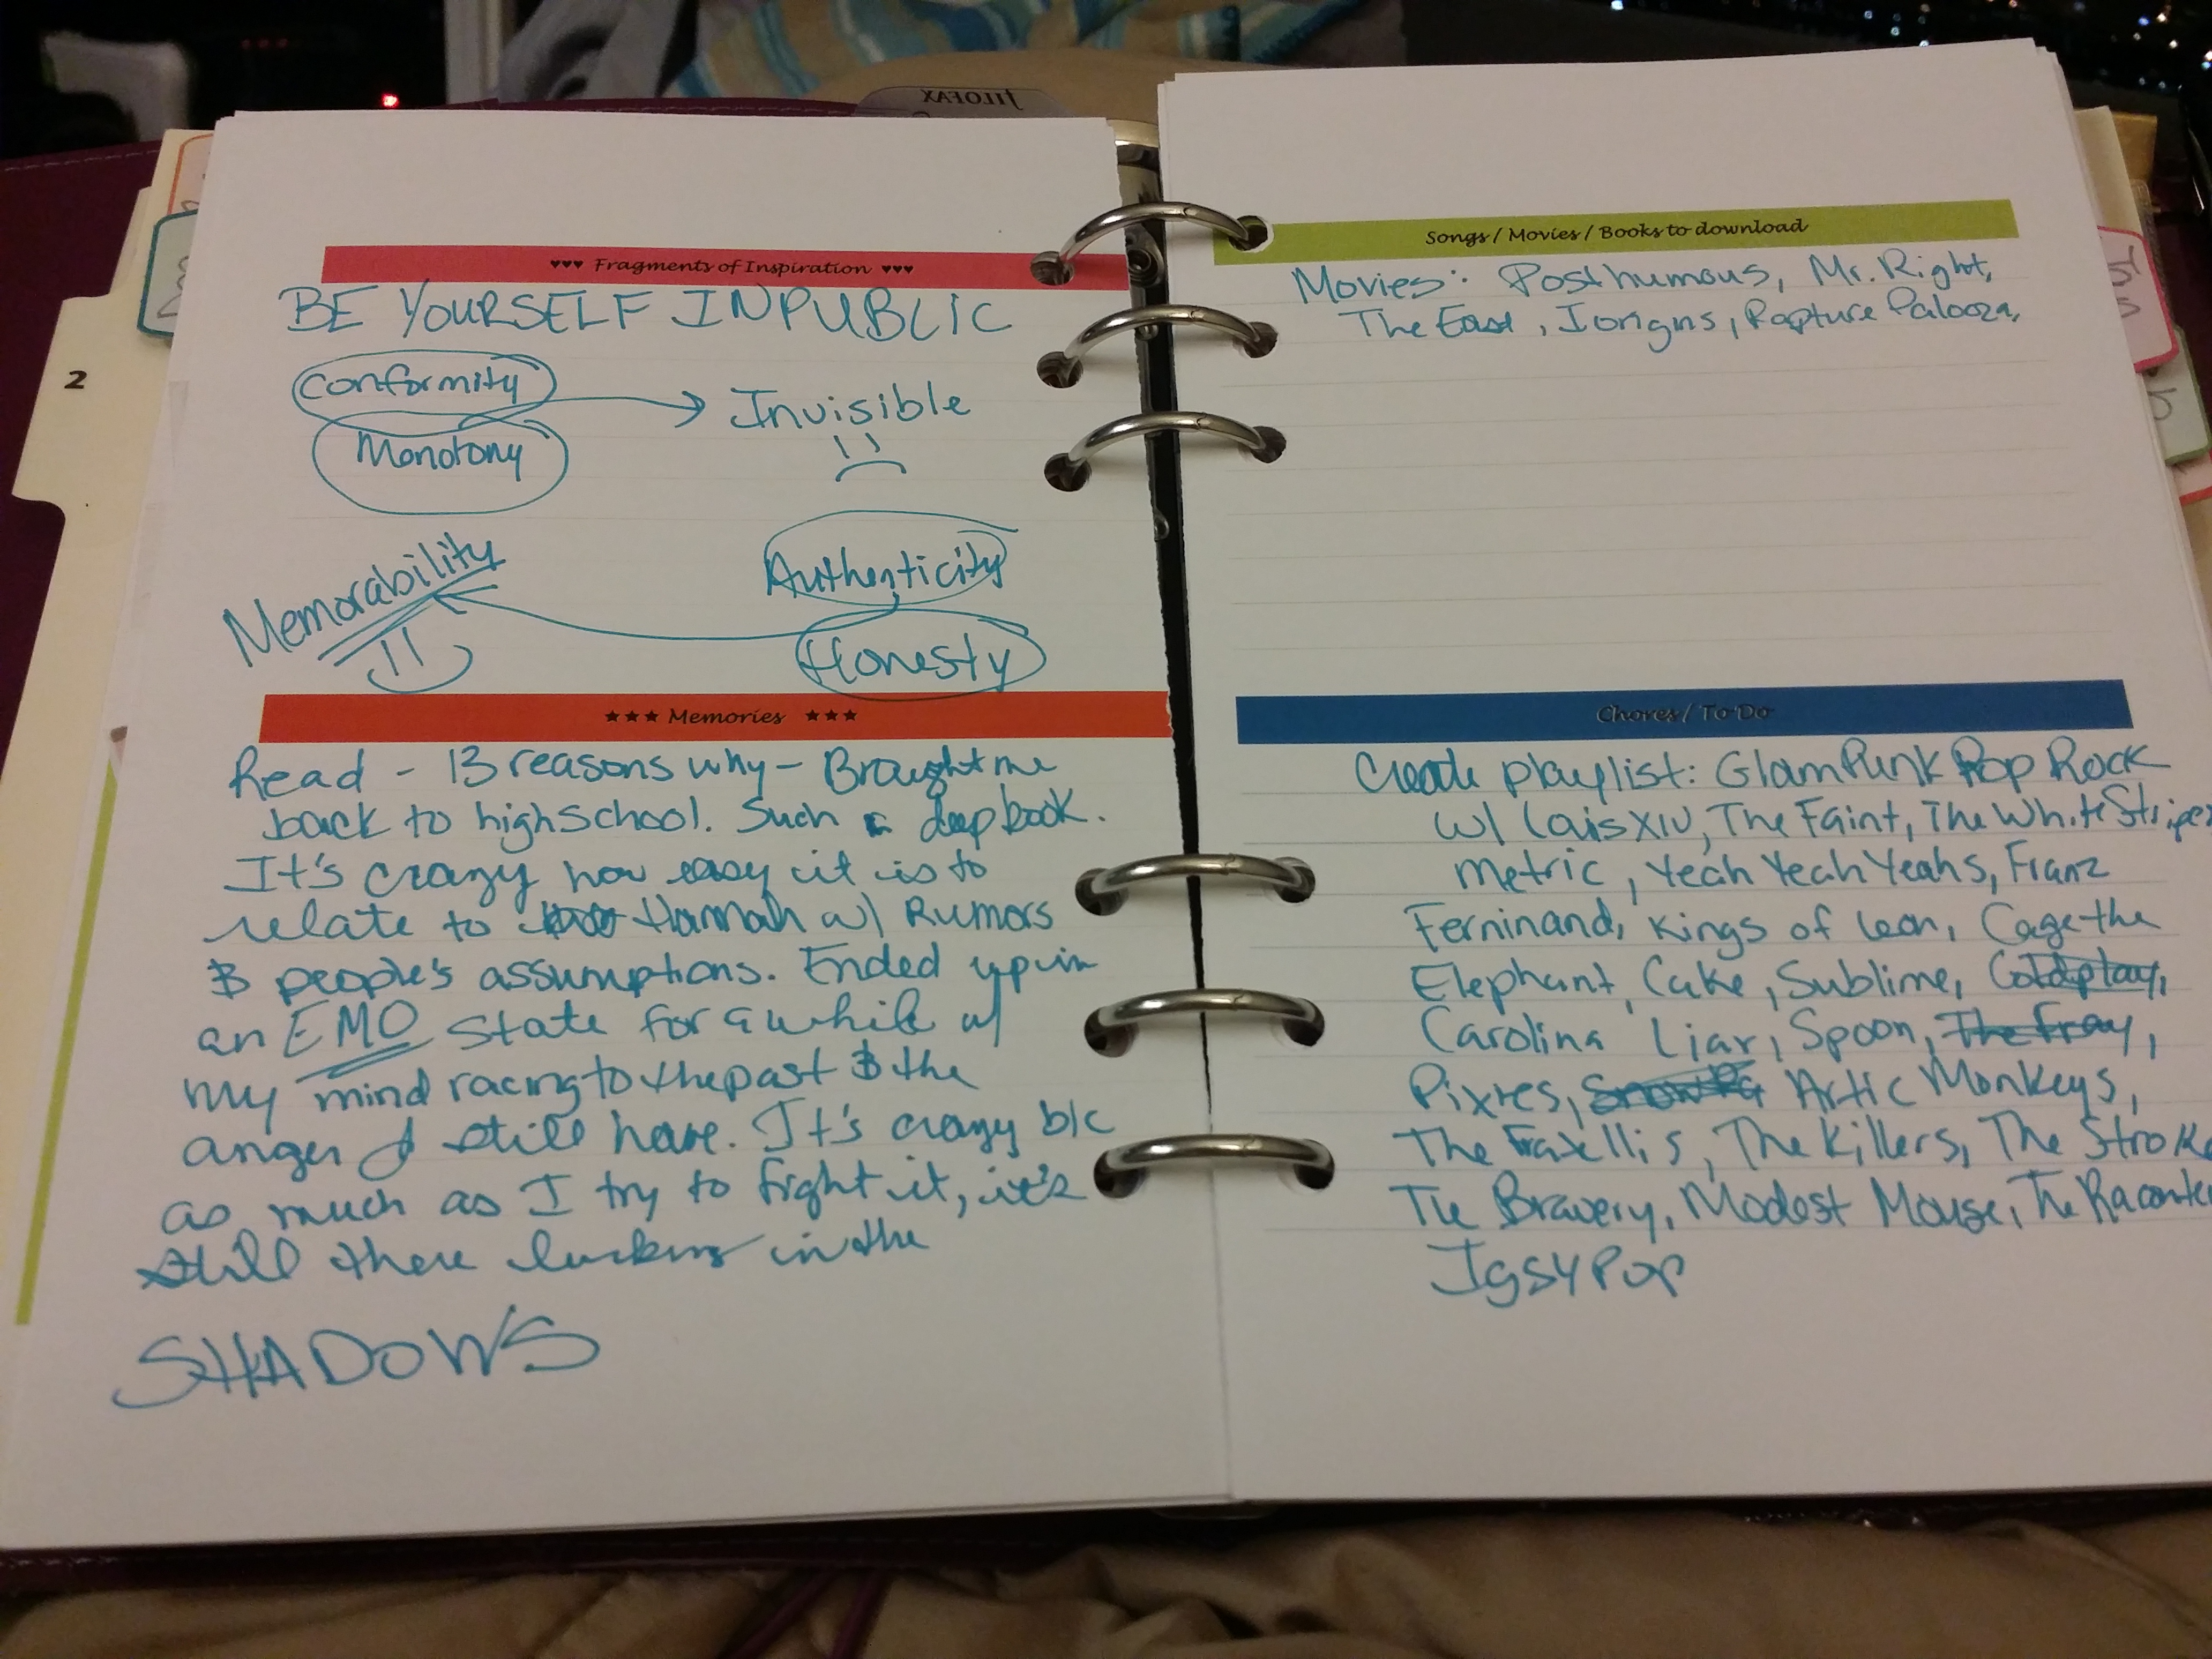 FILOFAX
2
♥♥♥ Fragments of Inspiration ♥♥♥
BE YOURSELF IN PUBLIC
Conformity
Invisible
Monotony
Authenticity
Memorability
Honesty
★★★ Memories ★★★
Read - 13 reasons why - Brought me
back to highschool. Such a deep book.
It's crazy how easy it is to
relate to Hannah w/ Rumors
& people's assumptions. Ended up in
an EMO state for a while w/
my mind racing to the past & the
anger I still have. It's crazy b/c
as much as I try to fight it, it's
still there lurking in the
SHADOWS
Songs / Movies / Books to download
Movies: Posthumous, Mr. Right,
The East, I origins, Rapture Palooza,
Chores / To Do
Create playlist: Glam Punk Pop Rock
w/ Lois XIV, The Faint, The White Stripes
Metric, Yeah Yeah Yeahs, Franz
Ferninand, Kings of Leon, Cage the
Elephant, Cake, Sublime, Coldplay,
Carolina Liar, Spoon, The Fray,
Pixies, Artic Monkeys,
The Fratellis, The Killers, The Stroke
The Bravery, Modest Mouse, The Raconte
Igsy Pop